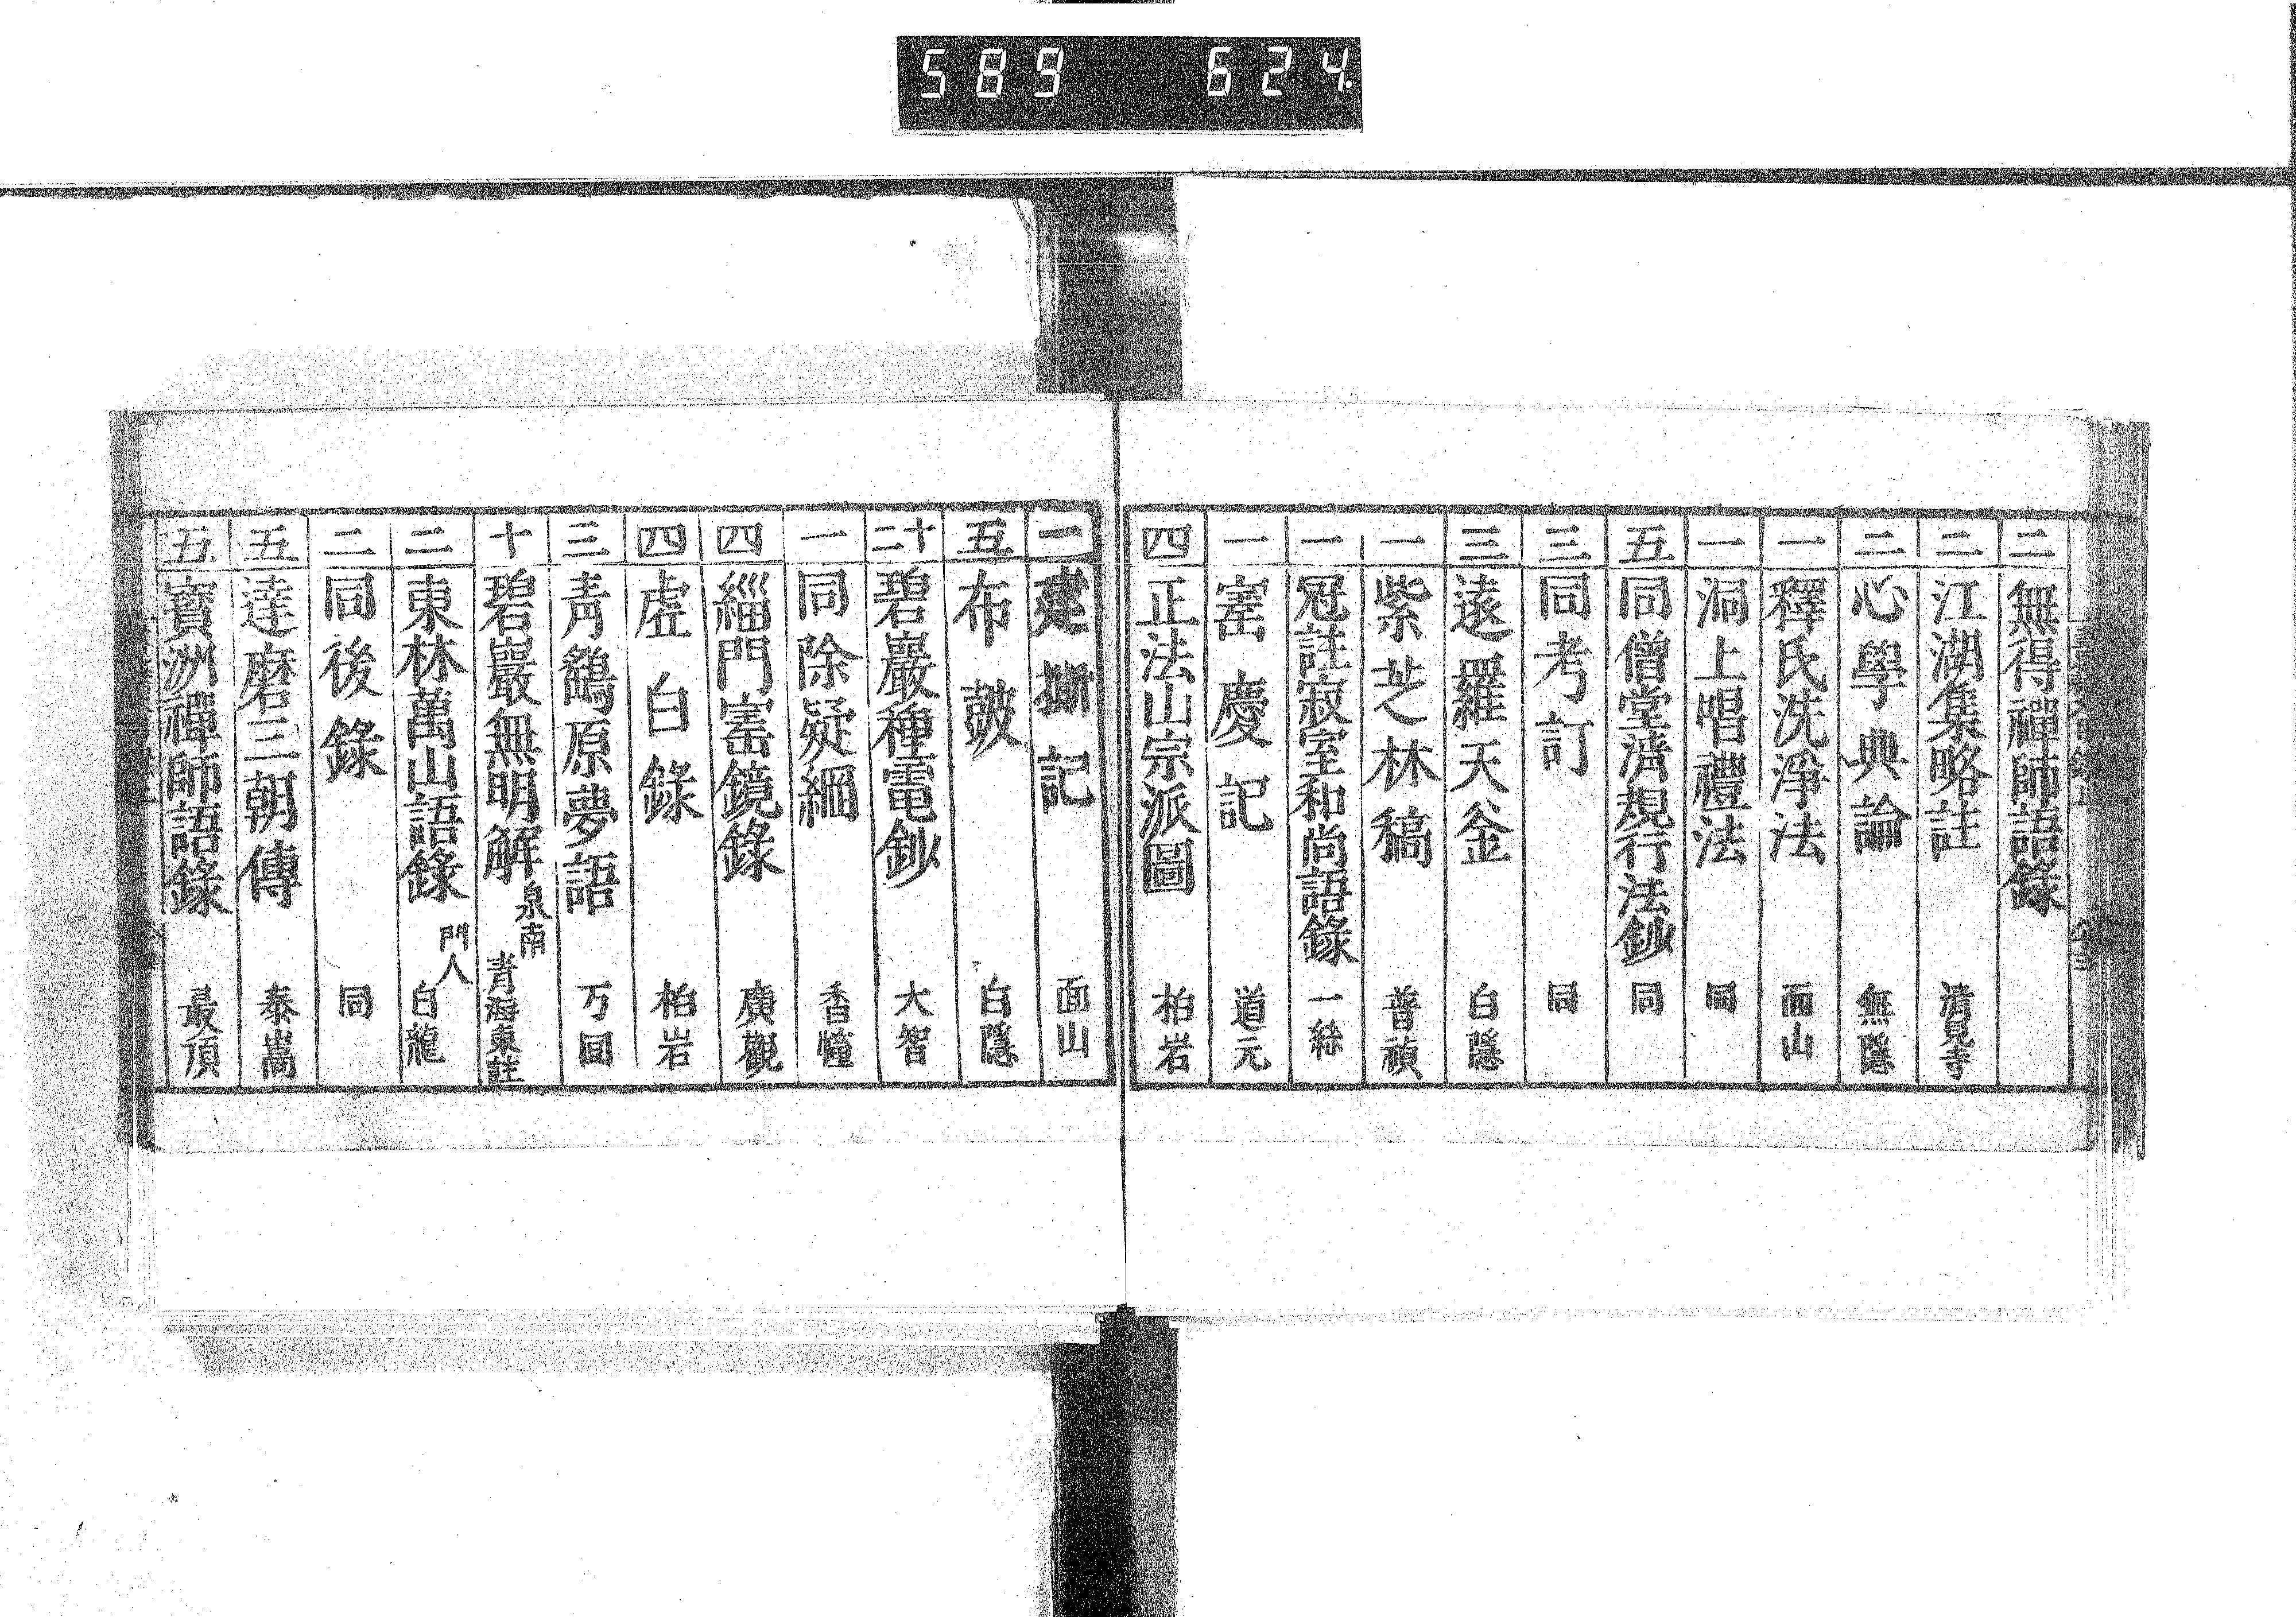 589 624.
二 無得禪師語錄
二 江湖集略註 清見寺
二 心學典論 無隱
一 釋氏洗淨法 面山
一 洞上唱禮法 同
五 同僧堂濟規行法鈔 同
三 同考訂 同
三 遠羅天釜 白隱
一 紫芝林稿 普禎
一 冠註寂室和尚語錄 一絲
一 寚慶記 道元
四 正法山宗派圖 柏岩
二 建撕記 面山
五 布皷 白隱
十二 碧巖種電鈔 大智
一 同除疑綱 香幢
四 緇門寚鏡錄 廣觀
四 虗白錄 柏岩
三 靑鷂原夢語 万回
十 碧巖無明解 泉南 青海東註
二 東林萬山語錄 門人 白龍
二 同後錄 同
五 達磨三朝傳 泰嵩
五 寶洲禪師語錄 最頂